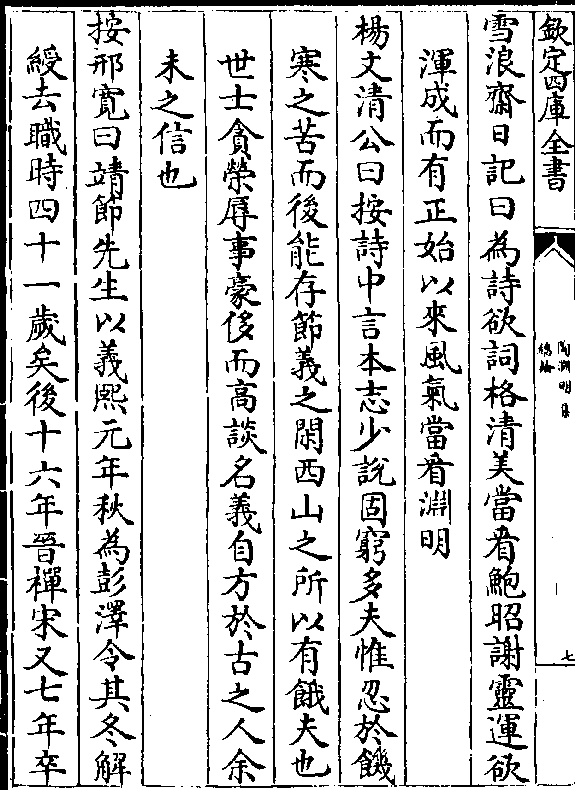 欽定四庫全書
陶淵明集
總論
七
雪浪齋日記曰為詩欲詞格清美當看鮑昭謝靈運欲
渾成而有正始以來風氣當看淵明
楊文清公曰按詩中言本志少說固窮多夫惟忍於饑
寒之苦而後能存節義之閑西山之所以有餓夫也
世士貪榮辱事豪侈而高談名義自方於古之人余
未之信也
按邢寛曰靖節先生以義熙元年秋為彭澤令其冬解
綬去職時四十一歲矣後十六年晉禪宋又七年卒